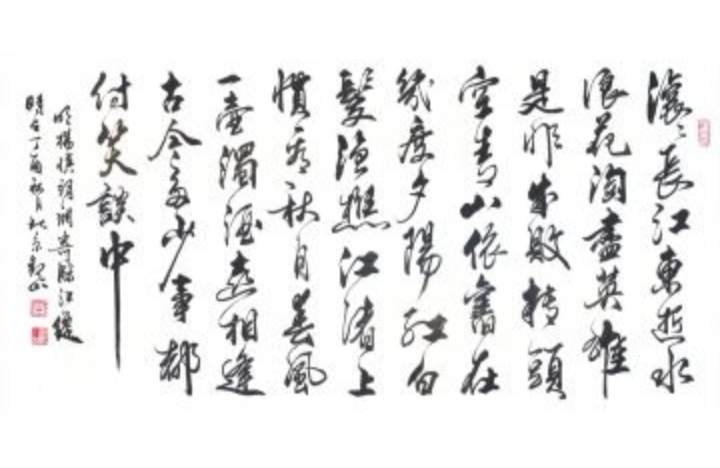 滾々長江東逝水
浪花淘盡英雄
是非成敗轉頭
空青山依舊在
幾度夕陽紅白
髮漁樵江渚上
慣看秋月春風
一壺濁酒喜相逢
古今多少事都
付笑談中
明楊慎詞調寄臨江仙
時在丁酉月北京